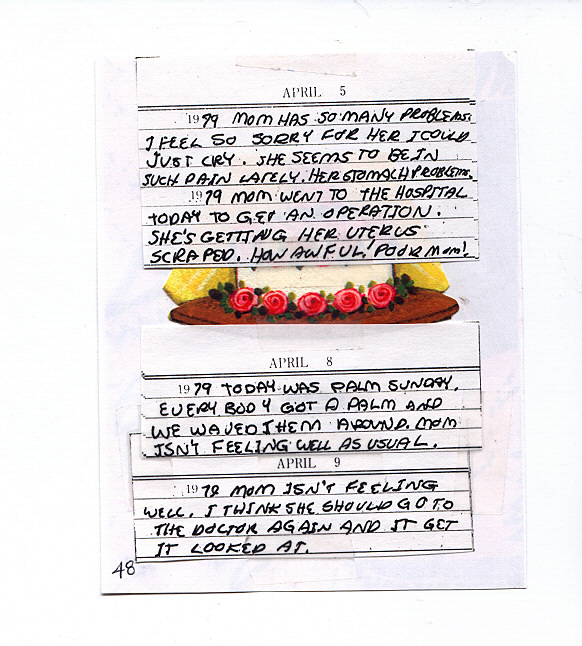 APRIL 5
1979 MOM HAS SO MANY PROBLEMS.
I FEEL SO SORRY FOR HER I COULD
JUST CRY. SHE SEEMS TO BE IN
SUCH PAIN LATELY. HER STOMACH PROBLEMS.
1979 MOM WENT TO THE HOSPITAL
TODAY TO GET AN OPERATION.
SHE'S GETTING HER UTERUS
SCRAPED. HOW AWFUL! POOR MOM!
APRIL 8
1979 TODAY WAS PALM SUNDAY.
EVERY BODY GOT A PALM AND
WE WAVED THEM AROUND. MOM
ISN'T FEELING WELL AS USUAL.
APRIL 9
1979 MOM ISN'T FEELING
WELL. I THINK SHE SHOULD GO TO
THE DOCTOR AGAIN AND IT GET
IT LOOKED AT.
48